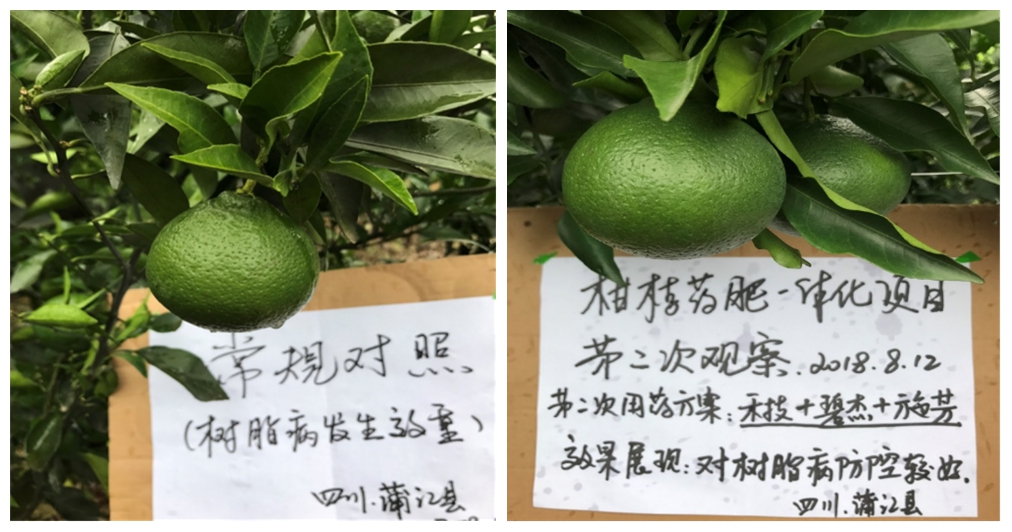 常规对照
(树脂病发生较重)
四川.蒲江县
柑桔药肥一体化项目
第二次观察.2018.8.12
第二次用药方案:禾技+碧杰+施芳
效果展现:对树脂病防控较好.
四川.蒲江县